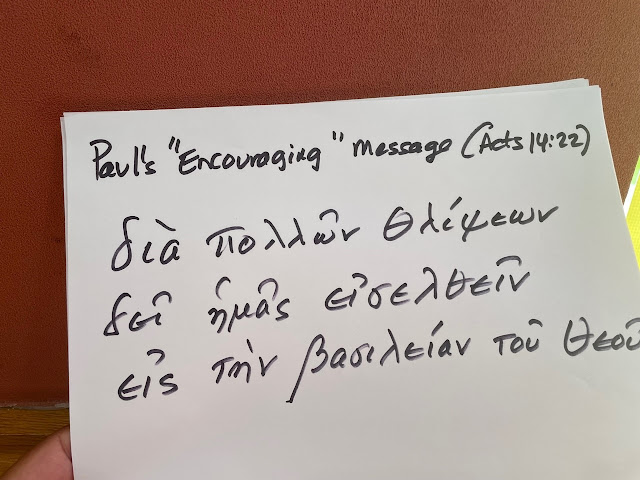 Paul's "Encouraging" message (Acts 14:22)
διὰ πολλῶν θλίψεων
δεῖ ἡμᾶς εἰσελθεῖν
εἰς τὴν βασιλείαν τοῦ θεοῦ